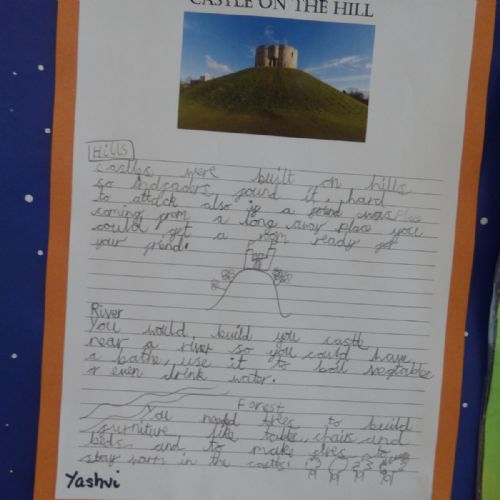 CASTLE ON THE HILL
Hills
Castles were built on hills
so indeaders found it hard
to attack also if a
coming from a long away place you
could get a room ready for
your friend.
River
You would build you castle
near a river so you could have
a bathe, use it to boil vegetables
r even drink water.
Forest
You need trees to build
furniture like table, chairs and
beds and to make fires to
stay warm in the castles!
Yashvi